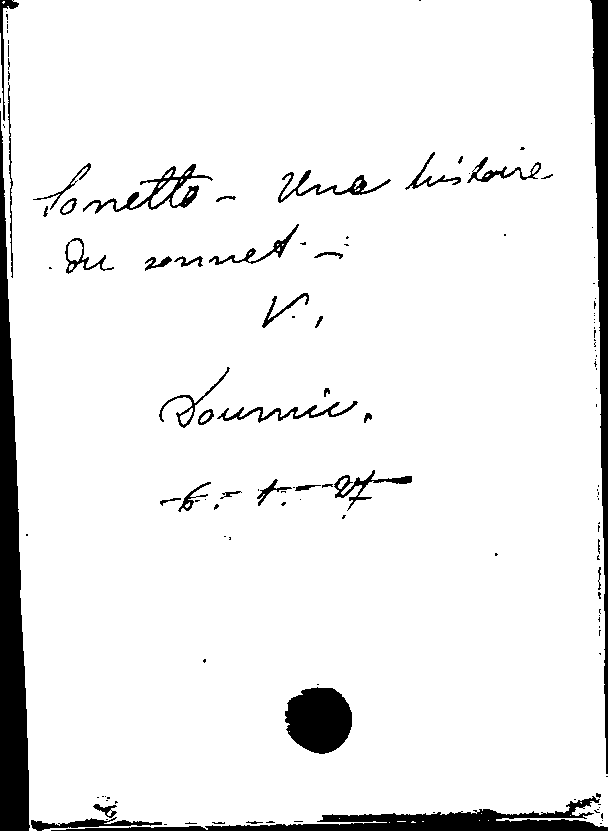 Sonetto - Una histoire
du sonnet -
V.
Doumic.
6. - 1. - 27